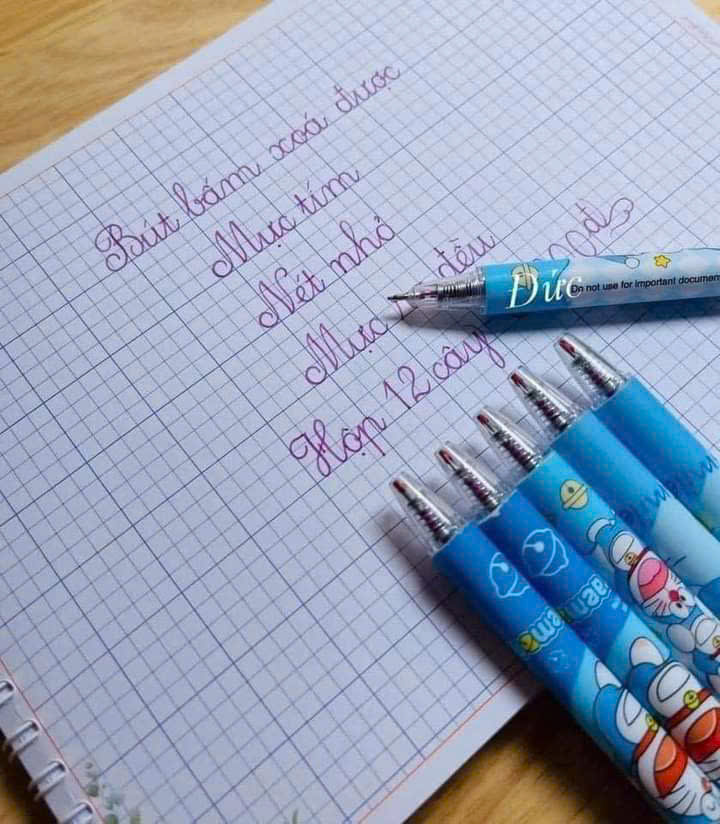 Bút bấm xoá được
Mực tím
Nét nhỏ
Mực đều
Hộp 12 cây
Đức
Do not use for important documen